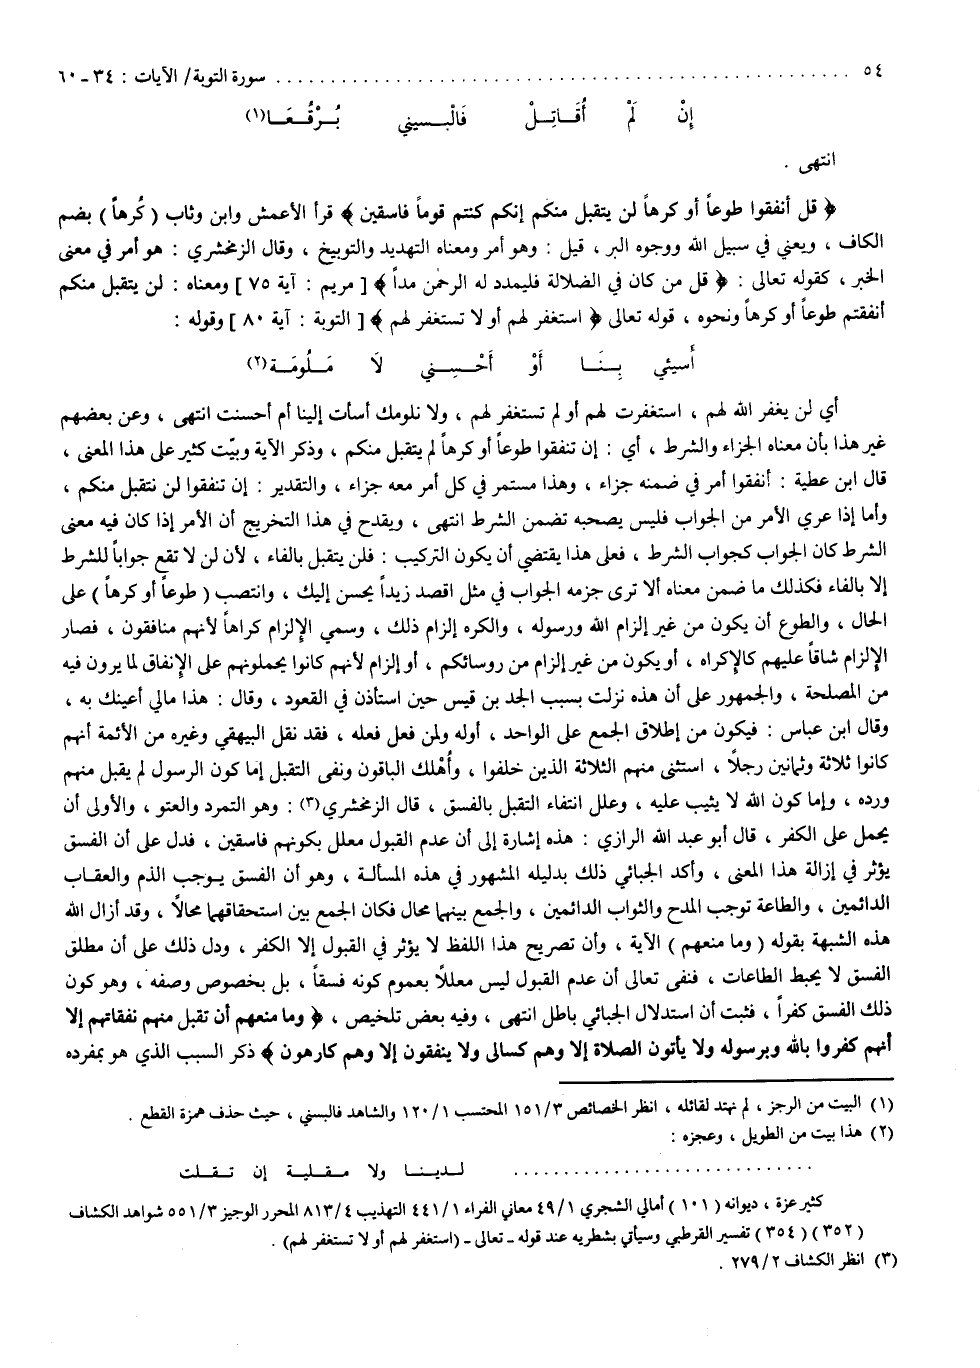 ٥٤ ............................................................ سورة التوبة/ الآيات : ٣٤ ـ ٦٠
إِنْ لَمْ أُقَـاتِـلْ فَالْبَـسِيني بُـرْقُـعَـا(١)
انتهى .
﴿ قل أنفقوا طوعاً أو كرهاً لن يتقبل منكم إنكم كنتم قوماً فاسقين ﴾ قرأ الأعمش وابن وثاب ( كُرهاً ) بضم
الكاف ، ويعني في سبيل الله ووجوه البر ، قيل : وهو أمر ومعناه التهديد والتوبيخ ، وقال الزمخشري : هو أمر في معنى
الخبر ، كقوله تعالى : ﴿ قل من كان في الضلالة فليمدد له الرحمٰن مداً ﴾ [ مريم : آية ٧٥ ] ومعناه : لن يتقبل منكم
أنفقتم طوعاً أو كرهاً ونحوه ، قوله تعالى ﴿ استغفر لهم أو لا تستغفر لهم ﴾ [ التوبة : آية ٨٠ ] وقوله :
أَسيئي بِـنَـا أَوْ أَحْـسِـني لَا مَـلُومَـة(٢)
أي لن يغفر الله لهم ، استغفرت لهم أو لم تستغفر لهم ، ولا نلومك أسأت إلينا أم أحسنت انتهى ، وعن بعضهم
غير هذا بأن معناه الجزاء والشرط ، أي : إن تنفقوا طوعاً أو كرهاً لم يتقبل منكم ، وذكر الآية وبيّت كثير على هذا المعنى ،
قال ابن عطية : أنفقوا أمر في ضمنه جزاء ، وهذا مستمر في كل أمر معه جزاء ، والتقدير : إن تنفقوا لن نتقبل منكم ،
وأما إذا عري الأمر من الجواب فليس يصحبه تضمن الشرط انتهى ، ويقدح في هذا التخريج أن الأمر إذا كان فيه معنى
الشرط كان الجواب كجواب الشرط ، فعلى هذا يقتضي أن يكون التركيب : فلن يتقبل بالفاء ، لأن لن لا تقع جواباً للشرط
إلا بالفاء فكذلك ما ضمن معناه ألا ترى جزمه الجواب في مثل اقصد زيداً يحسن إليك ، وانتصب ( طوعاً أو كرهاً ) على
الحال ، والطوع أن يكون من غير إلزام الله ورسوله ، والكره إلزام ذلك ، وسمي الإلزام كراهاً لأنهم منافقون ، فصار
الإلزام شاقاً عليهم كالإكراه ، أو يكون من غير إلزام من روسائكم ، أو إلزام لأنهم كانوا يحملونهم على الإنفاق لما يرون فيه
من المصلحة ، والجمهور على أن هذه نزلت بسبب الجد بن قيس حين استأذن في القعود ، وقال : هذا مالي أعينك به ،
وقال ابن عباس : فيكون من إطلاق الجمع على الواحد ، أوله ولمن فعل فعله ، فقد نقل البيهقي وغيره من الأئمة أنهم
كانوا ثلاثة وثمانين رجلًا ، استثنى منهم الثلاثة الذين خلفوا ، وأُهلك الباقون ونفى التقبل إما كون الرسول لم يقبل منهم
ورده ، وإما كون الله لا يثيب عليه ، وعلل انتفاء التقبل بالفسق ، قال الزمخشري(٣) : وهو التمرد والعتو ، والأولى أن
يحمل على الكفر ، قال أبو عبد الله الرازي : هذه إشارة إلى أن عدم القبول معلل بكونهم فاسقين ، فدل على أن الفسق
يؤثر في إزالة هذا المعنى ، وأكد الجبائي ذلك بدليله المشهور في هذه المسألـة ، وهو أن الفسق يـوجب الذم والعقـاب
الدائمين ، والطاعة توجب المدح والثواب الدائمين ، والجمع بينهما محال فكان الجمع بين استحقاقهما محالًا ، وقد أزال الله
هذه الشبهة بقوله ( وما منعهم ) الآية ، وأن تصريح هذا اللفظ لا يؤثر في القبول إلا الكفر ، ودل ذلك على أن مطلق
الفسق لا يحبط الطاعات ، فنفى تعالى أن عدم القبول ليس معللًا بعموم كونه فسقاً ، بل بخصوص وصفه ، وهو كون
ذلك الفسق كفراً ، فثبت أن استدلال الجبائي باطل انتهى ، وفيه بعض تلخيص ، ﴿ وما منعهم أن تقبل منهم نفقاتهم إلا
أنهم كفروا بالله وبرسوله ولا يأتون الصلاة إلا وهم كسالى ولا ينفقون إلا وهم كارهون ﴾ ذكر السبب الذي هو بمفرده
(١) البيت من الرجز ، لم نهتد لقائله ، انظر الخصائص ٣/ ١٥١ المحتسب ١/ ١٢٠ والشاهد فالبسني ، حيث حذف همزة القطع .
(٢) هذا بيت من الطويل ، وعجزه :
.............................. لـديـنـا ولا مـقـليـة إن تـقـلت
كثير عزة ، ديوانه ( ١٠١ ) أمالي الشجري ١/ ٤٩ معاني الفراء ١/ ٤٤١ التهذيب ٤/ ٨١٣ المحرر الوجيز ٣/ ٥٥١ شواهد الكشاف
( ٣٥٢ ) ( ٣٥٤ ) تفسير القرطبي وسيأتي بشطريه عند قوله ـ تعالى ـ (استغفر لهم أو لا تستغفر لهم) .
(٣) انظر الكشاف ٢/ ٢٧٩ .